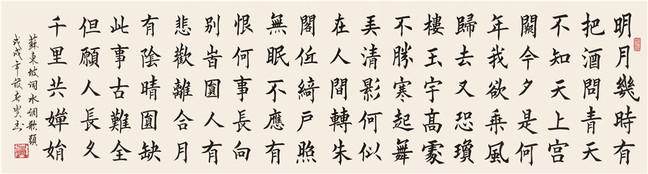 明月幾時有
把酒問青天
不知天上宮
闕今夕是何
年我欲乘風
歸去又恐瓊
樓玉宇高處
不勝寒起舞
弄清影何似
在人間轉朱
閣低綺戶照
無眠不應有
恨何事長向
別旹圓人有
悲歡離合月
有陰晴圓缺
此事古難全
但願人長久
千里共嬋娟
蘇東坡詞水調歌頭
戊戌年